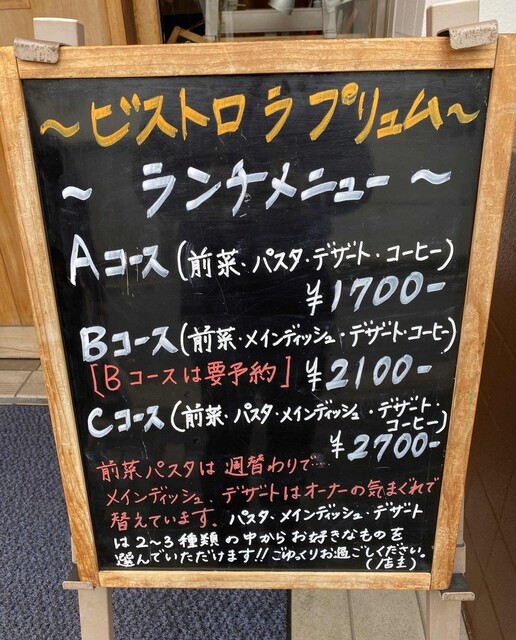 ～ビストロ ラ プリュム～
～ ランチメニュー ～
Aコース(前菜・パスタ・デザート・コーヒー)
¥1700-
Bコース(前菜・メインディッシュ・デザート・コーヒー)
[Bコースは要予約] ¥2100-
Cコース(前菜・パスタ・メインディッシュ・デザート・
コーヒー)
¥2700-
前菜パスタは 週替わりで…
メインディッシュ、デザートはオーナーの気まぐれで
替えています。パスタ・メインディッシュ・デザート
は2～3種類の中からお好きなものを
選んでいただけます!!ごゆっくりお過ごしください。
(店主)